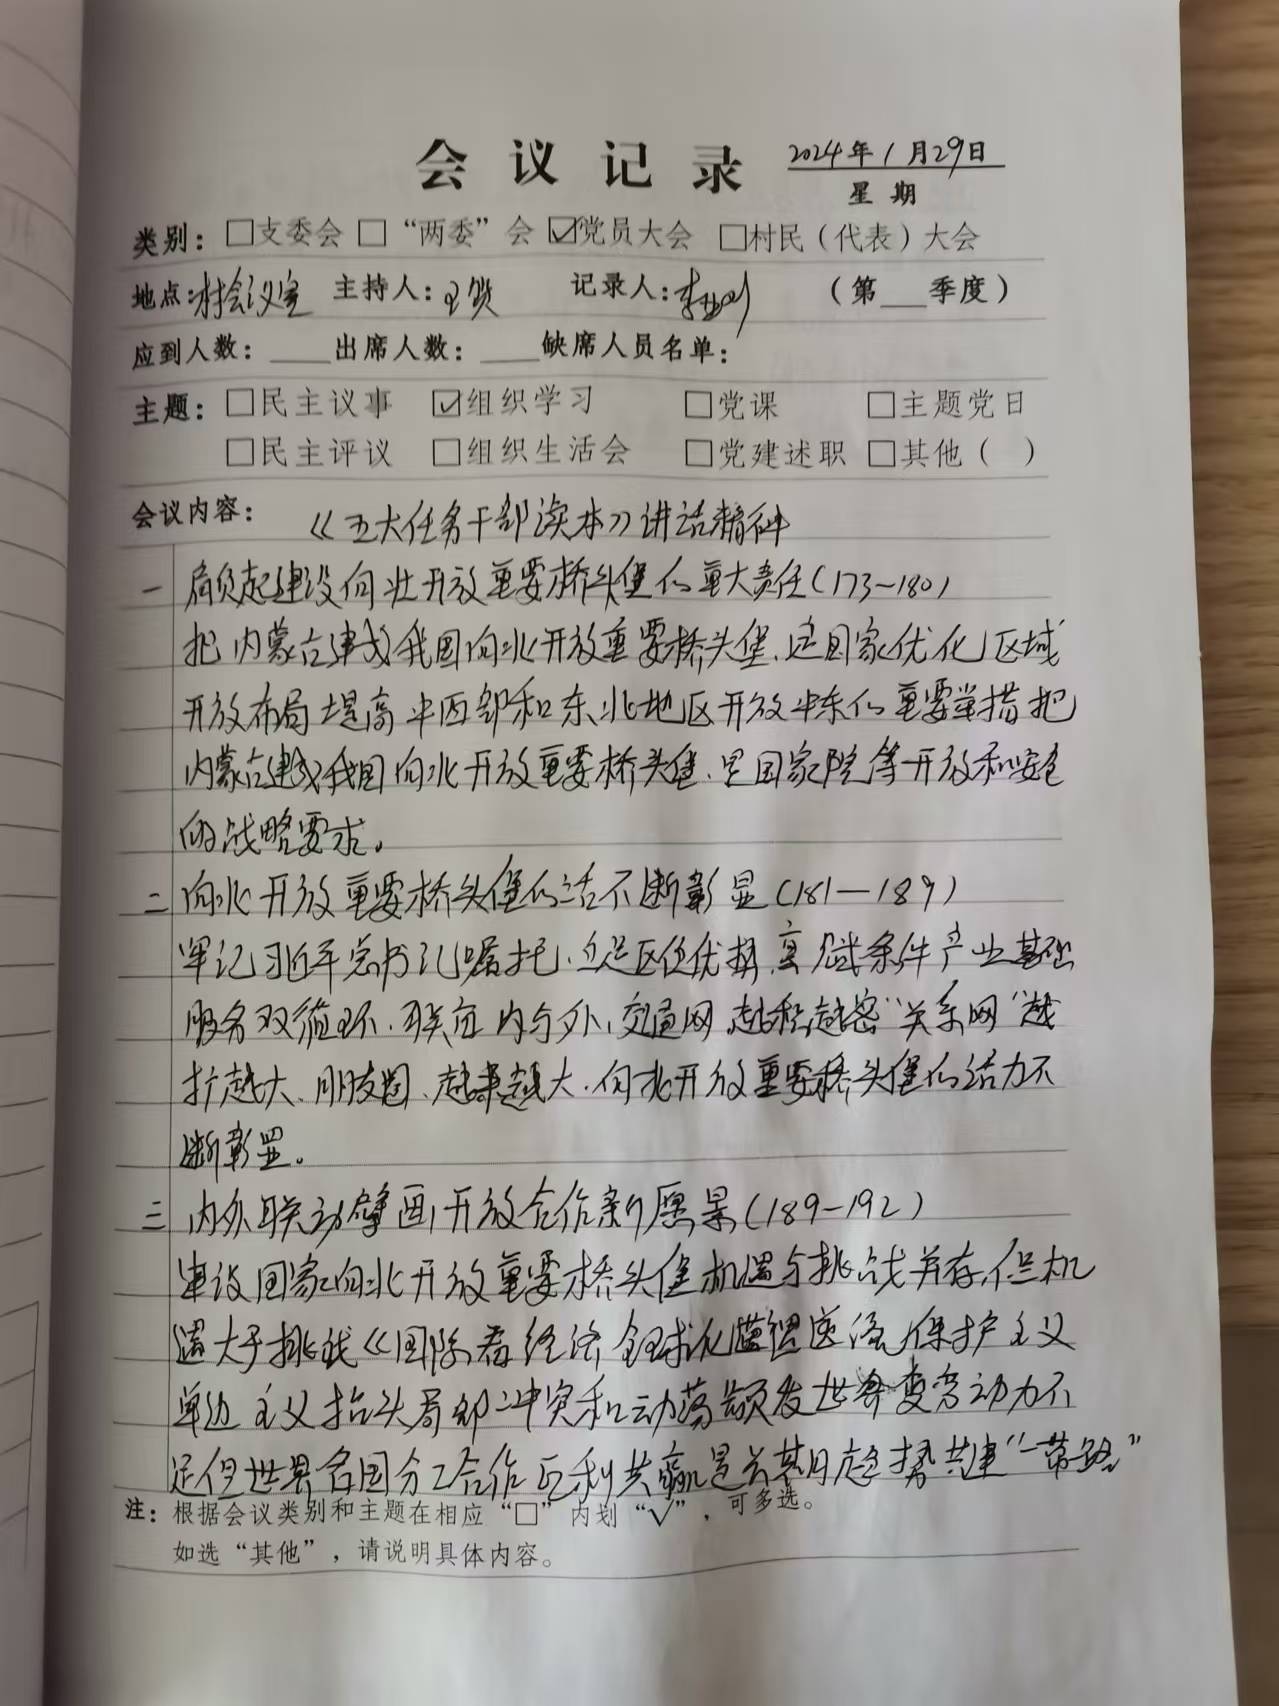 会议记录
2024年1月29日
星期
类别：□支委会 □“两委”会 ☑党员大会 □村民（代表）大会
地点：村会议室 主持人：王 记录人：李 （第___季度）
应到人数：____出席人数：____缺席人员名单：
主题：□民主议事 ☑组织学习 □党课 □主题党日
□民主评议 □组织生活会 □党建述职 □其他（ ）
会议内容： 《五大任务干部读本》讲话精神
一 肩负起建设向北开放重要桥头堡的重大责任(173-180)
把内蒙古建成我国向北开放重要桥头堡、是国家优化区域
开放布局 提高中西部和东北地区开放的重要举措把
内蒙古建成我国向北开放重要桥头堡、是国家统筹开放和安全
的战略要求。
二 向北开放重要桥头堡的活不断彰显(181—189)
牢记习近平总书记嘱托、立足区位优势、禀赋条件产业基础
服务双循环、联通内与外、交通网、越织越密“关系网”越
扩越大、朋友圈、越来越大、向北开放重要桥头堡的活力不
断彰显。
三 内外联动擘画开放合作新愿景(189-192)
建设国家向北开放重要桥头堡机遇与挑战并存，但机
遇大于挑战《国际看经济全球化遭遇逆流，保护主义
单边主义抬头局部冲突和动荡频发世界变革动力不
足但世界各国分工合作互利共赢是长期趋势共建“一带一路”
注：根据会议类别和主题在相应“□”内划“√”，可多选。
如选“其他”，请说明具体内容。